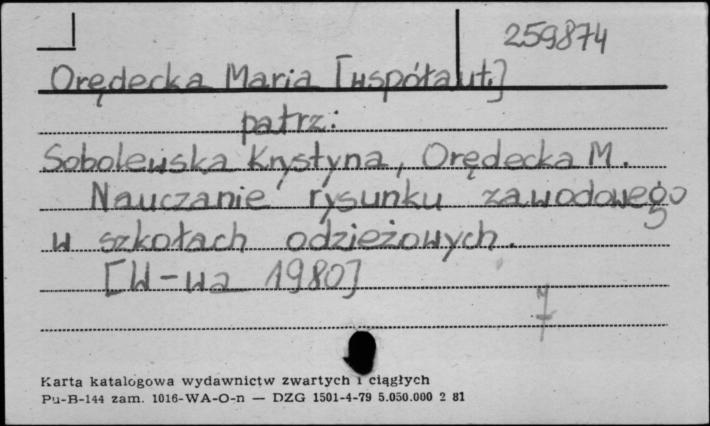 259874
Orędecka Maria [współaut.]
patrz:
Sobolewska Krystyna, Orędecka M.
Nauczanie rysunku zawodowego
w szkołach odzieżowych.
[W-wa 1980]
Karta katalogowa wydawnictw zwartych i ciągłych
Pu-B-144 zam. 1016-WA-O-n — DZG 1501-4-79 5.050.000 2 81